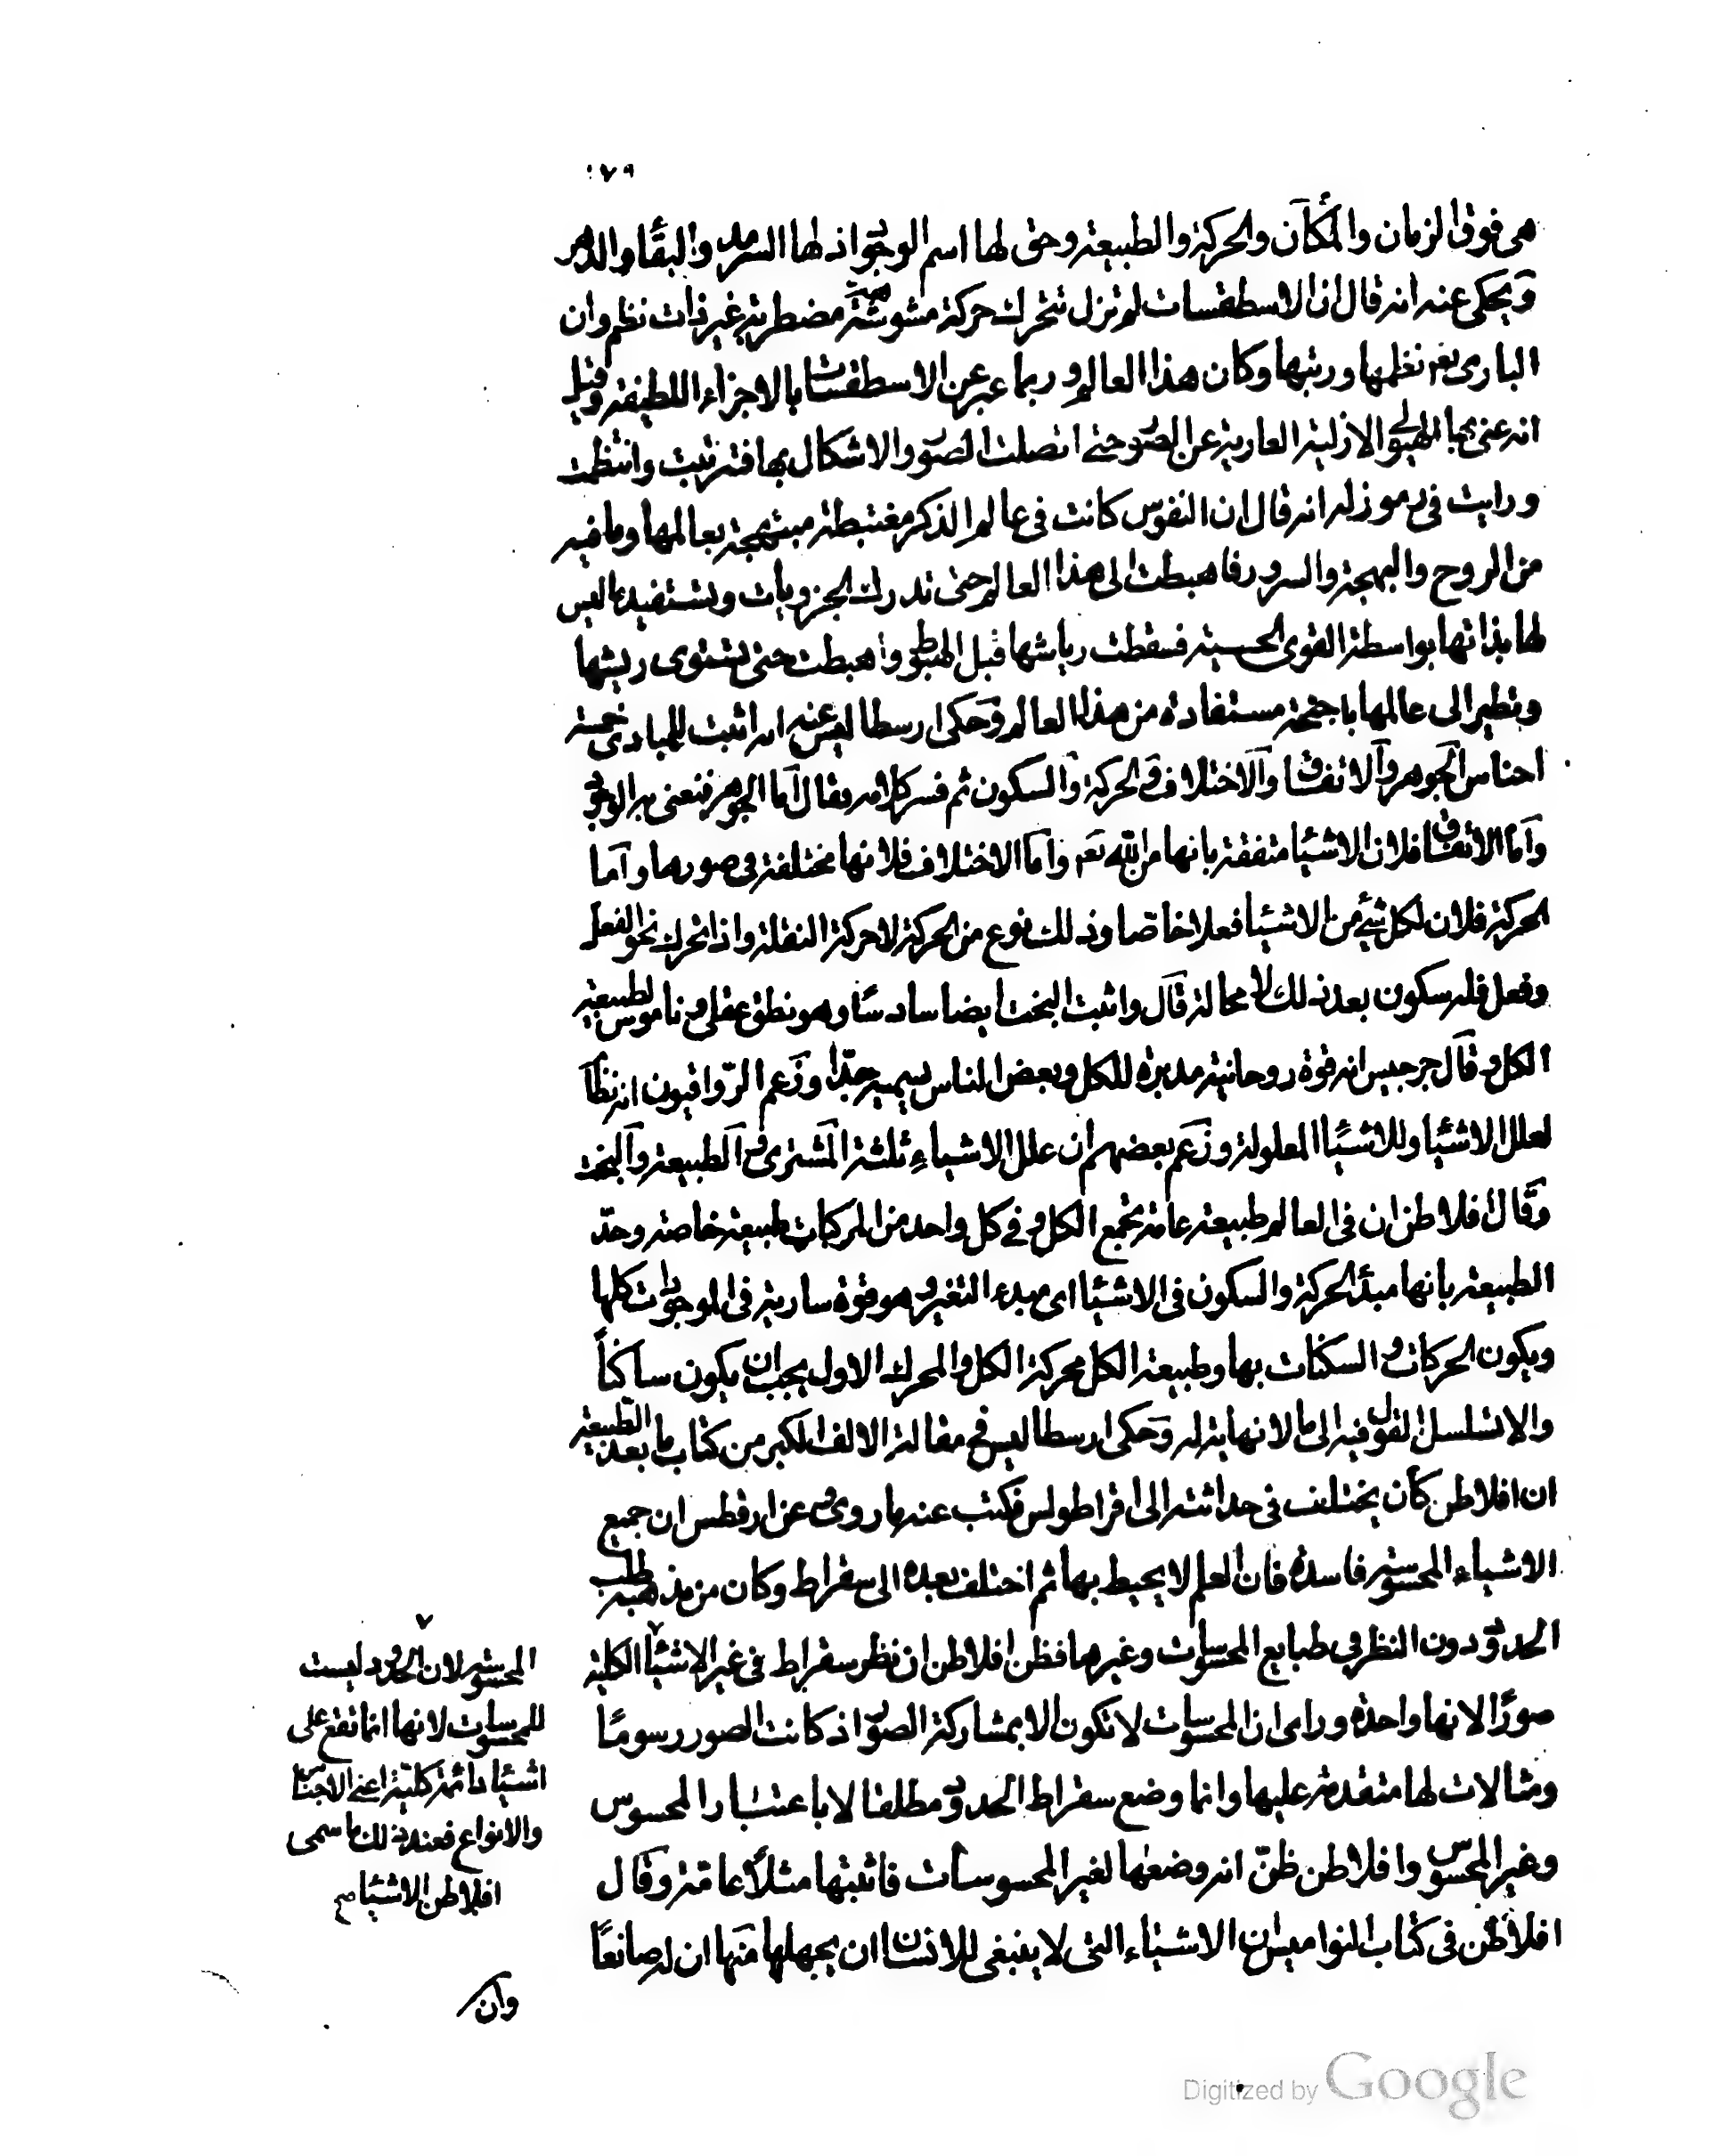 ١٧٩
هى فوق الزمان والمكان والحركة والطبيعة وحق لها اسم الوجود اذ لها السرمد والبقأ والدهر
ويحكى عنه انه قال ان الاسطقسات لم تزل تتحرك حركة مشوشة مضطربة غير ذات نظم وان
البارى تعم نظمها ورتبها وكان هذا العالم وربما عبر عن الاسطقسات بالاجزاء اللطيفة وقيل
انه عنى بها الهيولى الازلية العارية عن الصور حتى اتصلت الصور والاشكال بها فترتبت وانتظمت
ورايت فى رموز له انه قال ان النفوس كانت فى عالم الذكر مغتبطة مبتهجة بعالمها وما فيه
من الروح والبهجة والسرور فاهبطت الى هذا العالم حتى تدرك الجزويات وتستفيد ما ليس
لها بذاتها بواسطة القوى الحسية فسقطت رياشها قبل الهبوط واهبطت حتى يستوى ريشها
وتطير الى عالمها باجنحة مستفادة من هذا العالم وحكى ارسطاليس عنه انه اثبت للمبادى خمسة
اجناس الجوهر والاتفاق والاختلاف والحركة والسكون ثم فسر كلامه فقال اما الجوهر فنعنى به الوجود
واما الاتفاق فلان الاشيئا متفقة بانها من الله تعم واما الاختلاف فلانها مختلفة فى صورها واما
الحركة فلان لكل شئ من الاشيئا فعلا خاصا وذلك نوع من الحركة لا حركة النقلة واذا تحرك نحو الفعل
وفعل فله سكون بعد ذلك لا محالة قال واثبت البخت ايضا سادسًا وهو نطق عقلى وناموس لطبيعة
الكل وقال جرجيس انه قوة روحانية مدبرة للكل وبعض الناس يسميه جدّا وزعم الرّواقيون انه نظام
لعلل الاشيئا وللاشيئا المعلولة وزعم بعضهم ان علل الاشياء ثلثة المشترى والطبيعة والبخت
وقال افلاطن ان فى العالم طبيعة عامة تجمع الكل وفى كل واحد من المركبات طبيعة خاصة وحدّ
الطبيعة بانها مبدأ الحركة والسكون فى الاشيئا اى مبدء التغير وهو قوة سارية فى الموجودات كلها
ويكون الحركات والسكنات بها وطبيعة الكل محركة الكل والمحرك الاول يجب ان يكون ساكنًا
والا تسلسل القول فيه الى ما لا نهاية له وحكى ارسطاليس فى مقالة الالف الكبير من كتاب ما بعد الطبيعة
ان افلاطن كان يختلف فى حداثته الى اقراطولس فكتب عنه ما روى عن ارقطس ان جميع
الاشياء المحسوسة فاسدة فان العلم لا يحيط بها ثم اختلف بعده الى سقراط وكان من مذهبه طلب
الحدود دون النظر فى طبايع المحسوسات وغيرها فظن افلاطن ان نظر سقراط فى غير الاشيئا الكلية
صورًا لانها واحدة وراى ان المحسوسات لا تكون الا بمشاركة الصور اذ كانت الصور رسومًا
ومثالات لها متقدمة عليها وانما وضع سقراط الحدود مطلقا لا باعتبار المحسوس
وغير المحسوس وافلاطن ظنّ انه وضعها لغير المحسوسات فاثبتها مثلًا عامة وقال
افلاطن فى كتاب النواميس ان الاشياء التى لا ينبغى للانسان ان يجهلها منها ان له صانعًا
المحسوسة لان الحدود ليست
للمحسوسات لانها انما تقع على
اشيئا دائمة كلية اعنى الاجناس
والانواع فعند ذلك ما سمى
افلاطن الاشيئا صح
وان
Digitized by Google